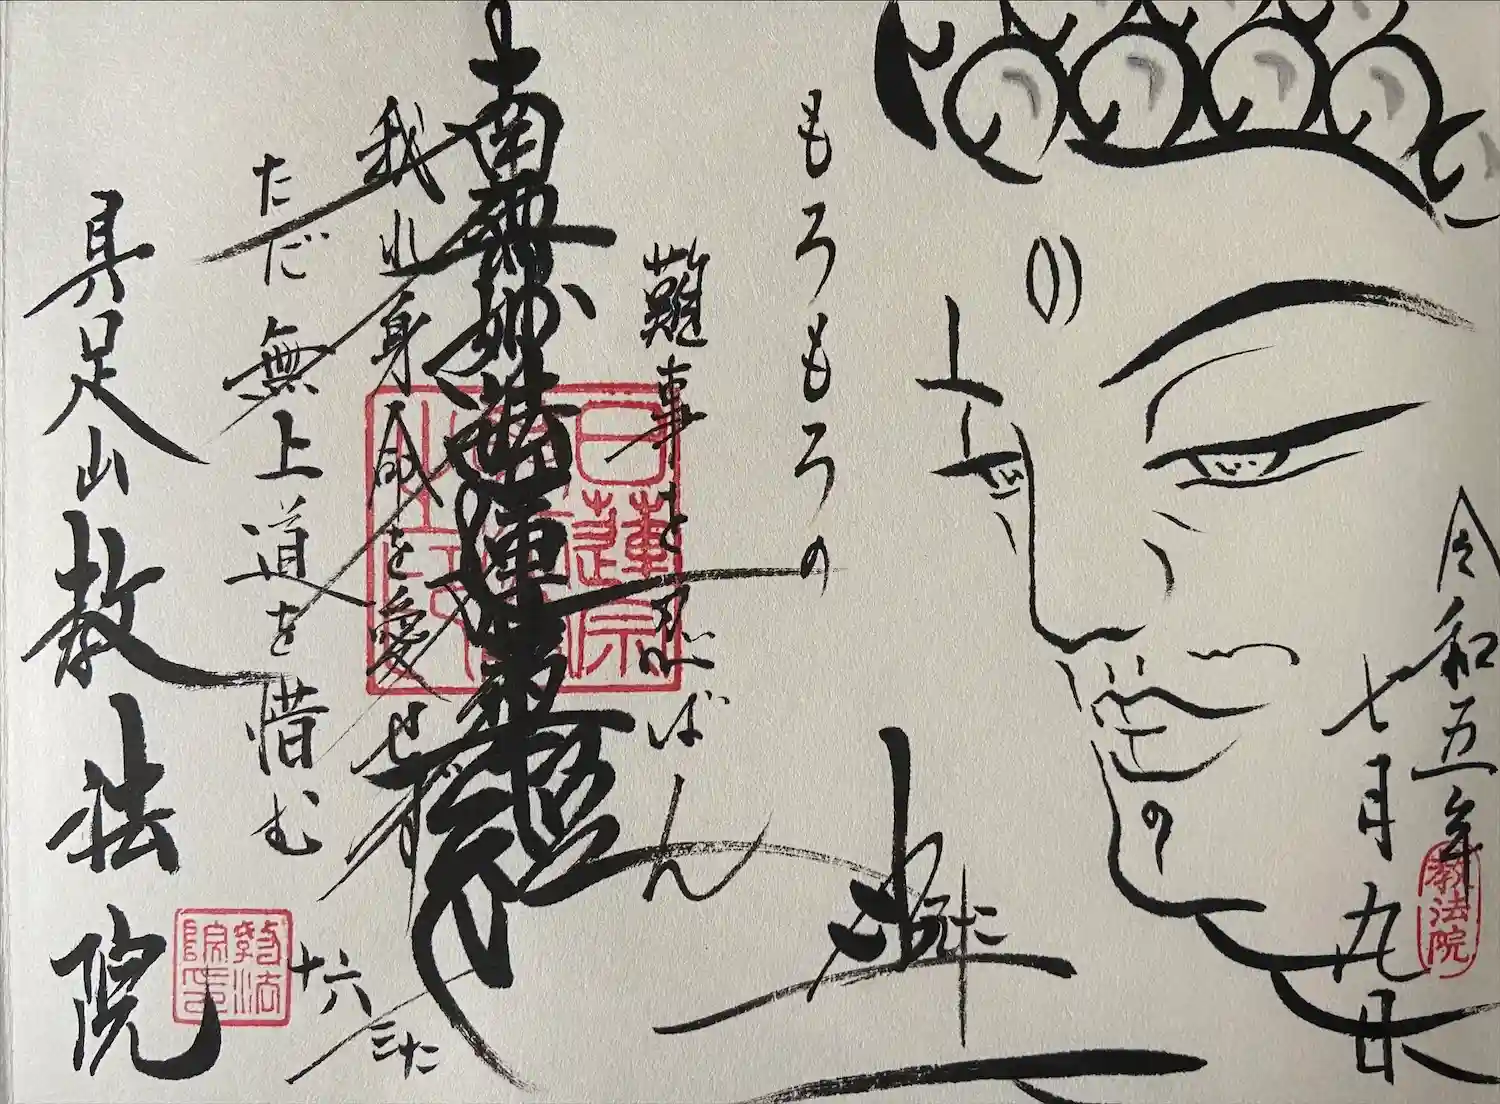 令和五年
七月九日
教法院
もろもろの
難事を忍ばん
南無妙法蓮華経
日蓮宗
我れ身命を愛せず
ただ無上道を惜む
十六
三十二
具足山教法院
教法院印